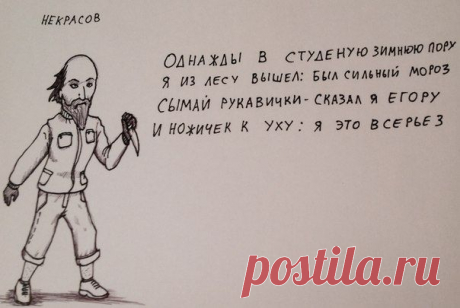 НЕКРАСОВ
ОДНАЖДЫ В СТУДЕНУЮ ЗИМНЮЮ ПОРУ
Я ИЗ ЛЕСУ ВЫШЕЛ: БЫЛ СИЛЬНЫЙ МОРОЗ
СЫМАЙ РУКАВИЧКИ - СКАЗАЛ Я ЕГОРУ
И НОЖИЧЕК К УХУ: Я ЭТО ВСЕРЬЕЗ
postila.ru